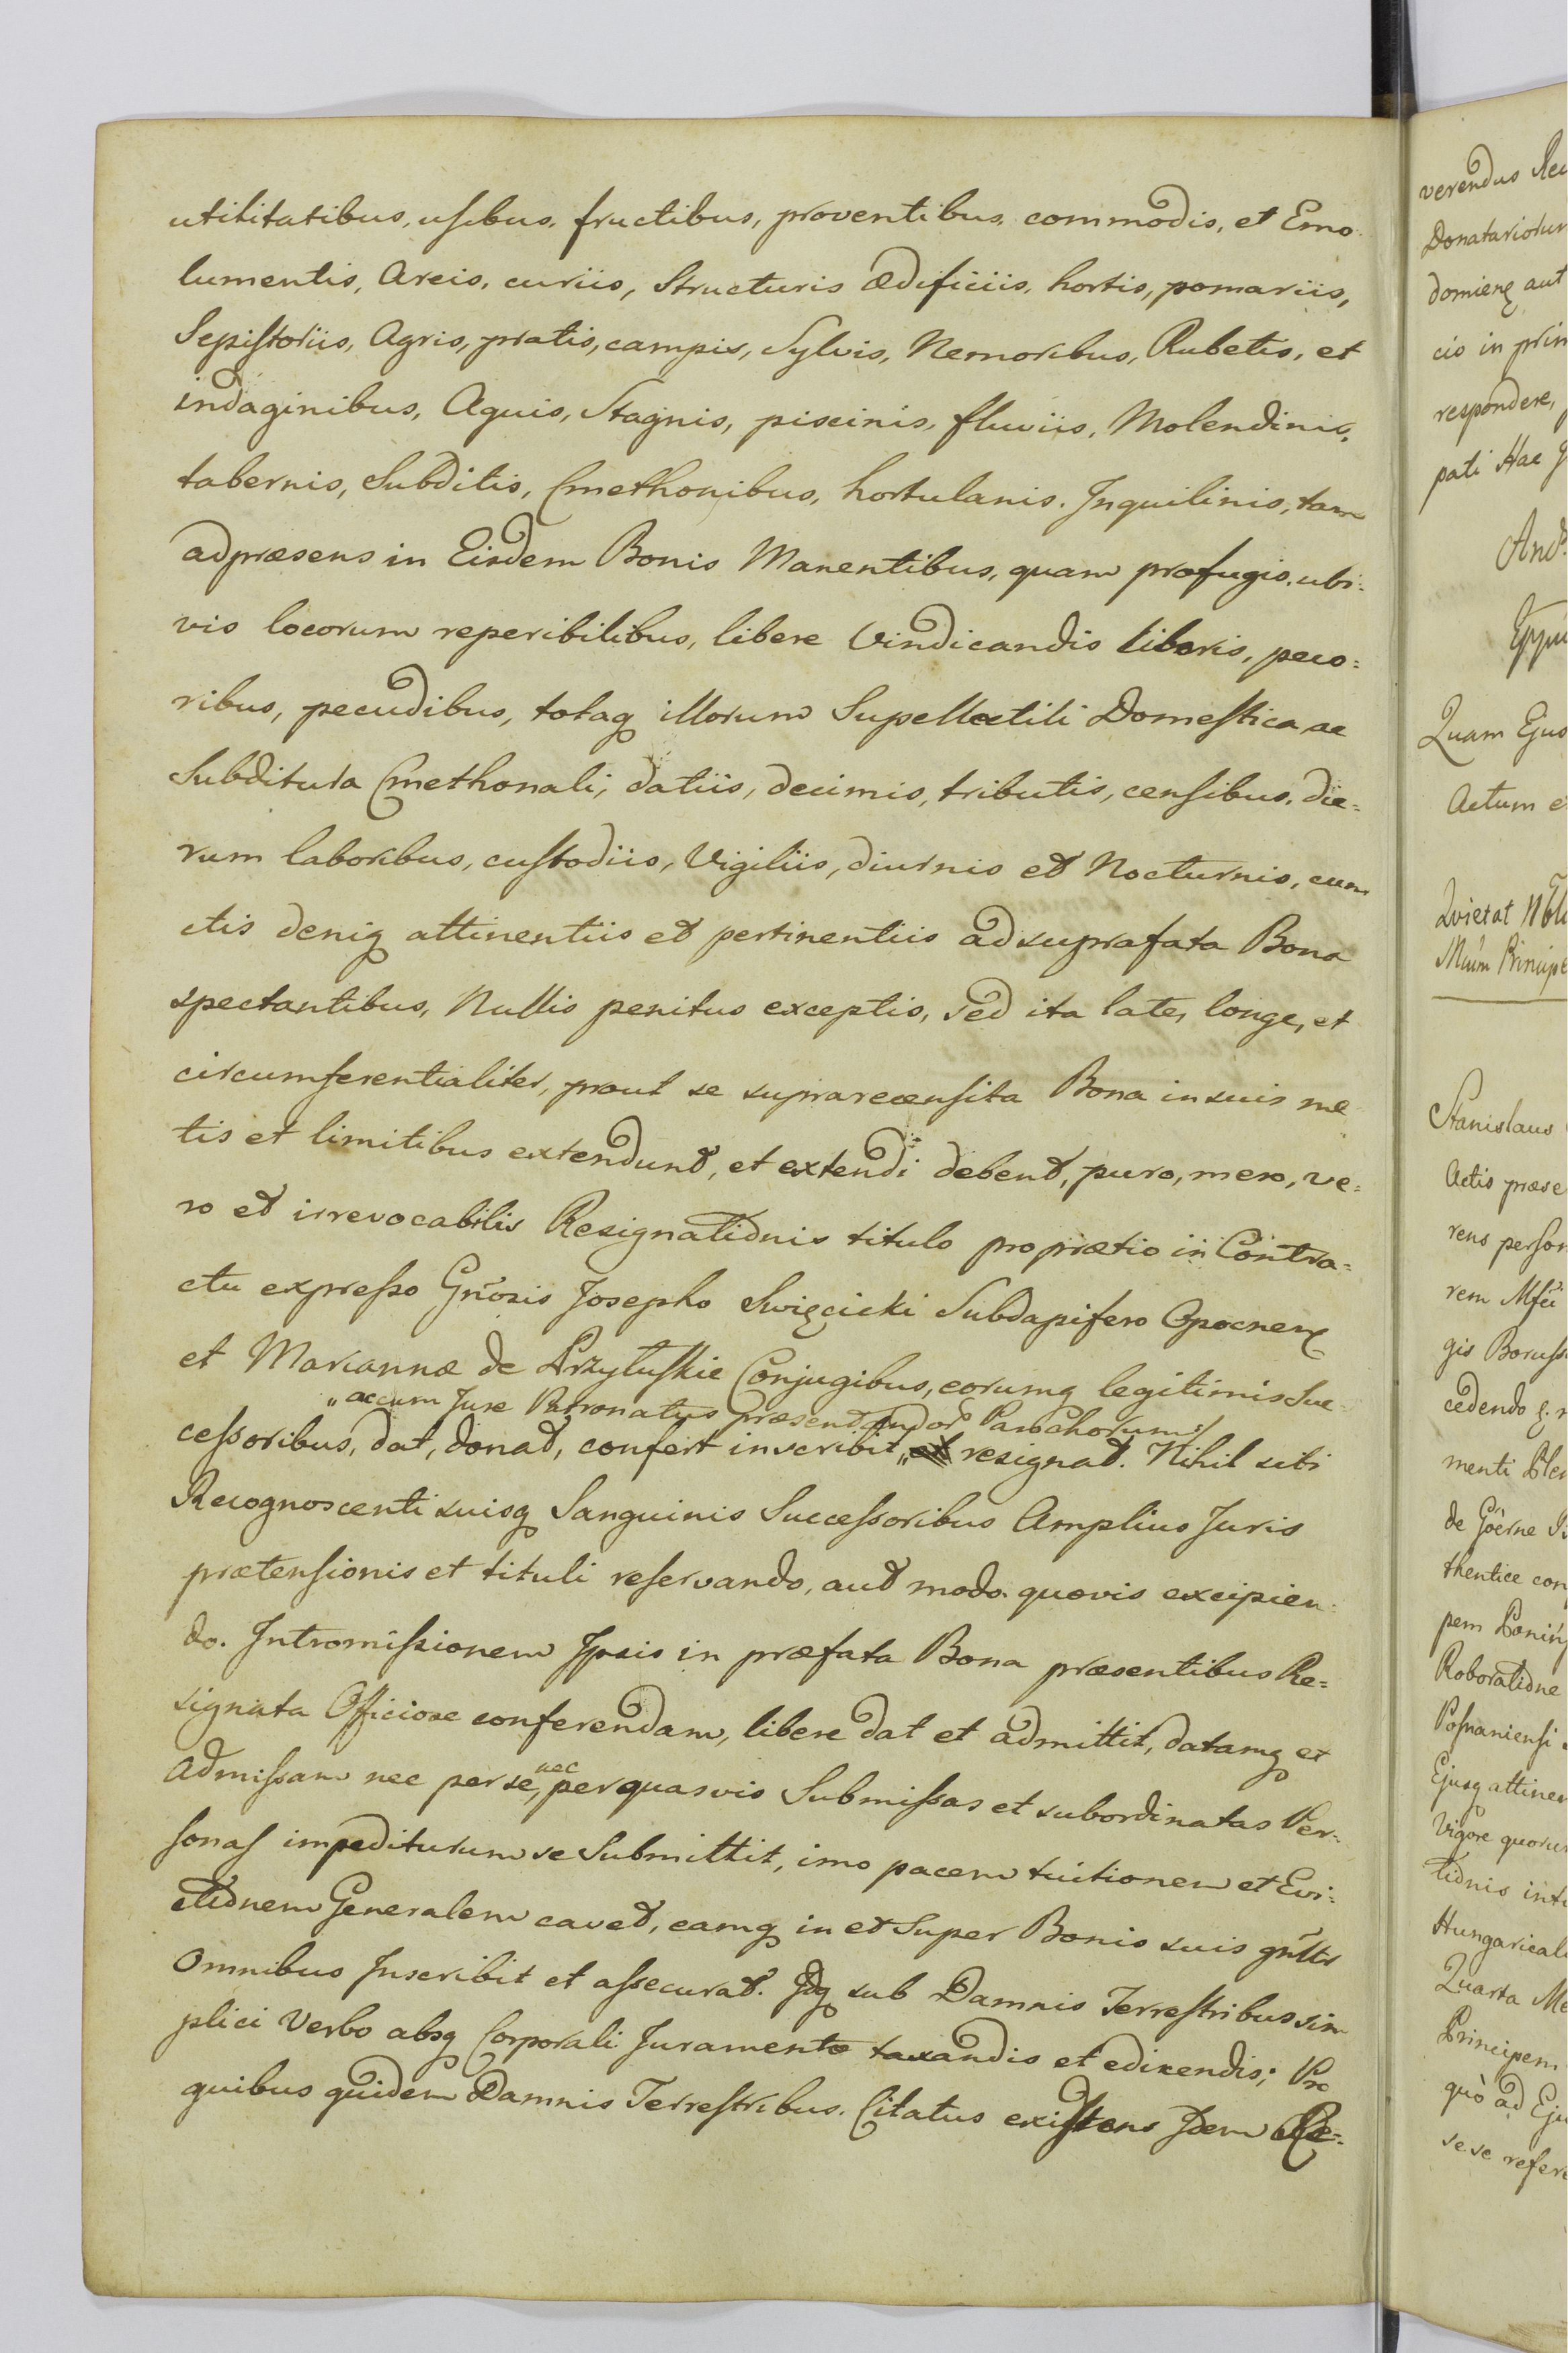 utilitatibus, usibus, fructibus, proventibus, commodis, et Emo
lumentis, Areis, curiis, Structuris ædificiis, hortis, pomariis,
Sepistoriis, Agris, pratis, campis, Sylvis, Nemoribus, Rubetis, et
indaginibus, Aquis, Stagnis, piscinis, fluviis, Molendinis,
tabernis, Subditis, Cmethonibus, hortulanis. Inquilinis, tam
ad præsens in Eisdem Bonis Manentibus, quam profugis, ubi:
vis locorum reperibilibus, libere Vindicandis liberis, peco=
ribus, pecudibus, totaq illorum Supellectili Domestica, ac
Subditura Cmethonali, datiis, decimis, tributis, censibus, die=
rum laboribus, custodiis, Vigiliis, diurnis et Nocturnis, cun
ctis deniq attinentiis et pertinentiis ad suprafata Bona
spectantibus, Nullis penitus exceptis, sed ita late, longe, et
circumferentialiter, prout se suprarecensita Bona in suis me
tis et limitibus extendunt, et extendi debent, puro, mero, ve=
ro et irrevocabilis Resignatidnis titulo pro prætio in Contra=
ctu expresso Gnõsis Josepho Swięcicki Subdapifero Opocnen
et Mariannæ de Przyłuskie Conjugibus, eorumq legitimis Suc=
„ac cum Jure Patronatus præsentandor Parochorum:/
cessoribus, dat, donat, confert inscribit „ et resignat. Nihil sibi
Recognoscenti suisq Sanguinis Successoribus Amplius Juris
prætensionis et tituli reservando, aut modo quovis excipien=
do. Intromissionem Ipsis in præfata Bona præsentibus Re=
signata Officiose conferendam, libere dat et admittit, datamq et
Admissam nec per se, nec per quasvis Submissas et subordinatas Per=
sonas impediturum se Submittit, imo pacem tuitionem et Evi:
ctidnem Generalem cavet, eamq in et Super Bonis suis gnltr
Omnibus Inscribit et assecurat. Idq sub Damnis Terrestribus sim
plici Verbo absq Corporali Juramento taxandis et edicendis; Pro
quibus quidem Damnis Terrestribus. Citatus existens Idem Re=
verendus Rec
Donatariorum
domienq aut
cio in prim
respondere,
pati Hac
And
Quam Ejus
Actum e
Qvietat
Mcum Principe
Stanislaus
Actis præse
rens person
rem Mfci
gis Boruss
cedendo
menti Ple
de Goerne
thentice con
pem Ponins
Roboratidne
Posnaniensi
Ejusq attinen
Vigore quorum
tidnis inte
Hungarical
Quarta Me
Principem
quò ad Eju
sese refere